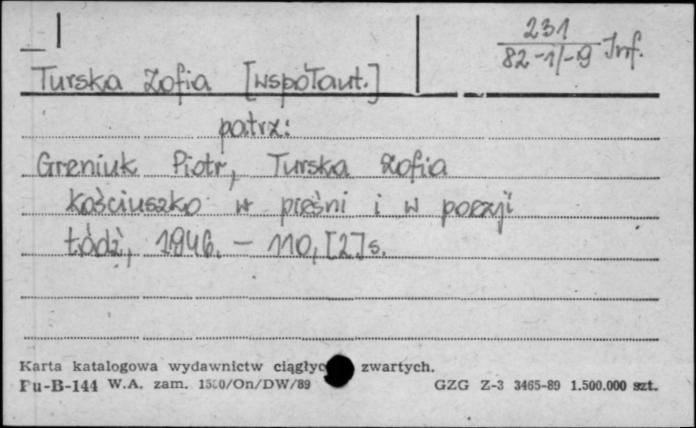 231
82-1/-9 Inf.
Turska Zofia [współaut.]
patrz:
Greniuk Piotr, Turska Zofia
Kościuszko w pieśni i w poezji
Łódź, 1946. - 110, [2] s.
Karta katalogowa wydawnictw ciągłyc zwartych.
Pu-B-144 W.A. zam. /On/DW/89 GZG Z-3 3465-89 1.500.000 szt.